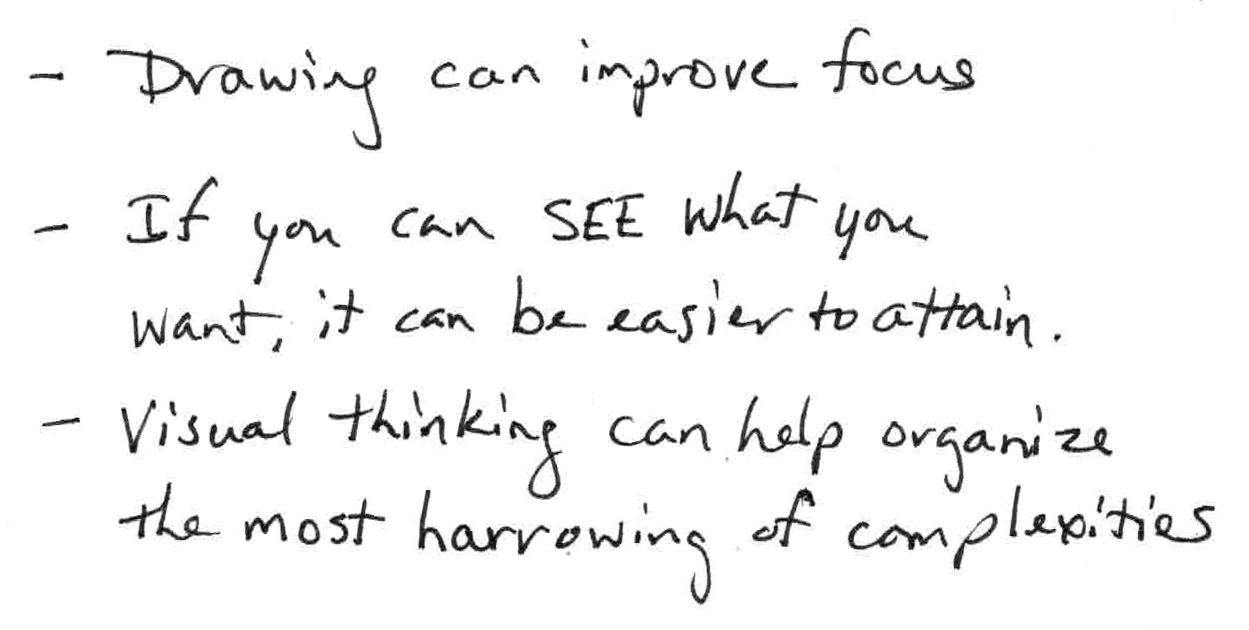 - Drawing can improve focus
- If you can SEE what you
want, it can be easier to attain.
- Visual thinking can help organize
the most harrowing of complexities